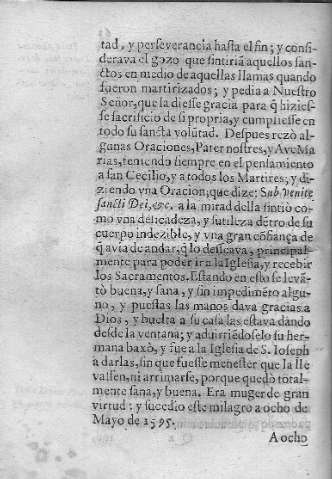 tad, y perseverancia hasta el fin; y consi-
derava el gozo que sintiriã aquellos san-
ctos en medio de aquellas llamas quando
fueron martirizados; y pedia a Nuestro
Señor, que la diesse gracia para q̃ hizies-
se sacrificio de si propria, y cumpliesse en
todo su sancta volũtad. Despues rezò al-
gunas Oraciones, Pater nostres, y Ave Ma
rias, teniendo siempre en el pensamiento
a san Cecilio, y a todos los Martires; y di-
ziendo vna Oracion, que dize: Sub venite
sancti Dei, &c. a la mitad della sintiò co-
mo vna delicadeza, y sutileza dẽtro de su
cuerpo indezible, y vna gran cõfiança de
q̃ avia de andar, q̃ lo desseava, principal-
mente para poder ir a la Iglesia, y recebir
los Sacramentos. Estando en esto se levã-
tò buena, y sana, y sin impedimẽto algu-
no, y puestas las manos dava gracias a
Dios, y buelta a su casa las estava dando
desde la ventana; y advirtiẽdoselo su her-
mana baxò, y fue a la Iglesia de S. Ioseph
a darlas, sin que fuesse menester que la lle
vassen, ni arrimarse, porque quedò total-
mente sana, y buena. Era muger de gran
virtud: y sucediò este milagro a ocho de
Mayo de 1595.
A ocho